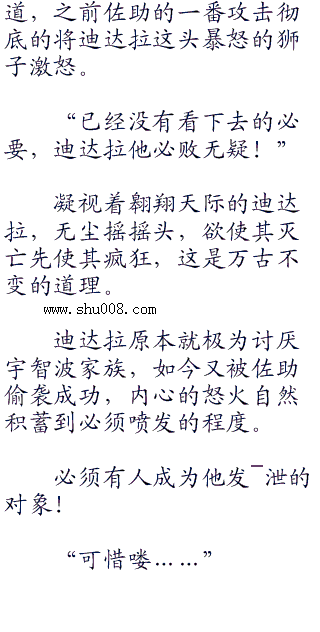 道，之前佐助的一番攻击彻
底的将迪达拉这头暴怒的狮
子激怒。
“已经没有看下去的必
要，迪达拉他必败无疑！”
凝视着翱翔天际的迪达
拉，无尘摇摇头，欲使其灭
亡先使其疯狂，这是万古不
变的道理。
www.shu008.com
迪达拉原本就极为讨厌
宇智波家族，如今又被佐助
偷袭成功，内心的怒火自然
积蓄到必须喷发的程度。
必须有人成为他发ˉ泄的
对象！
“可惜喽……”